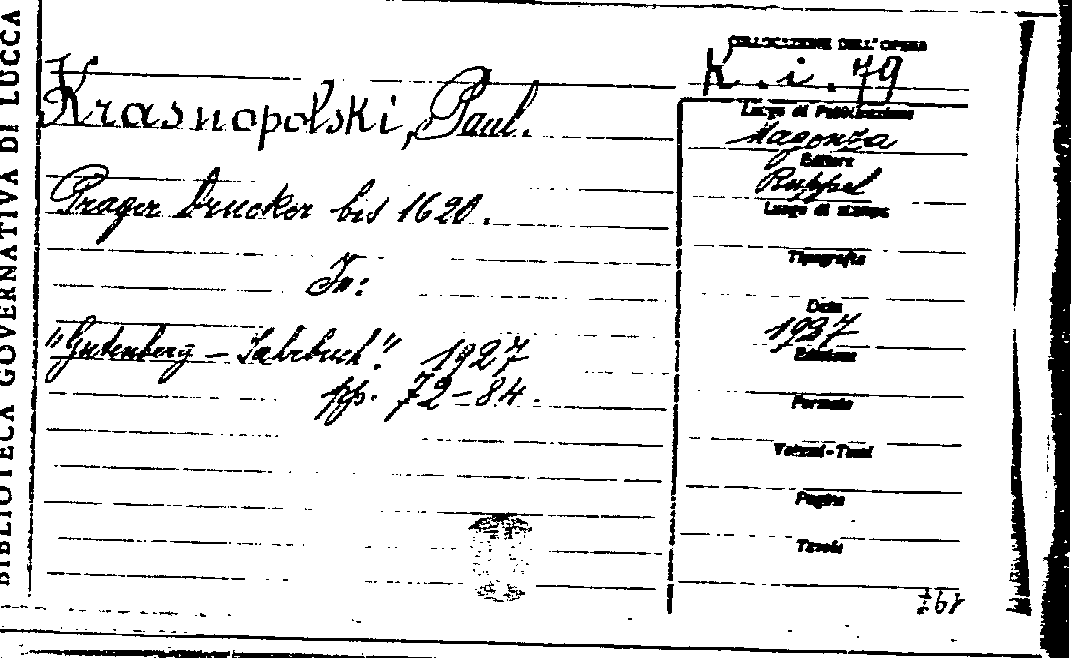 BIBLIOTECA GOVERNATIVA DI LUCCA
Krasnopolski, Paul.
Prager Drucker bis 1620.
In:
"Gutenberg - Jahrbuch". 1927
pp. 72-84.
COLLOCAZIONE DELL'OPERA
K.i.79
Luogo di Pubblicazione
Magonza
Editore
Ruppel
Luogo di stampa
Tipografia
Data
1927
Edizione
Formato
Volumi-Tomi
Pagine
Tavole